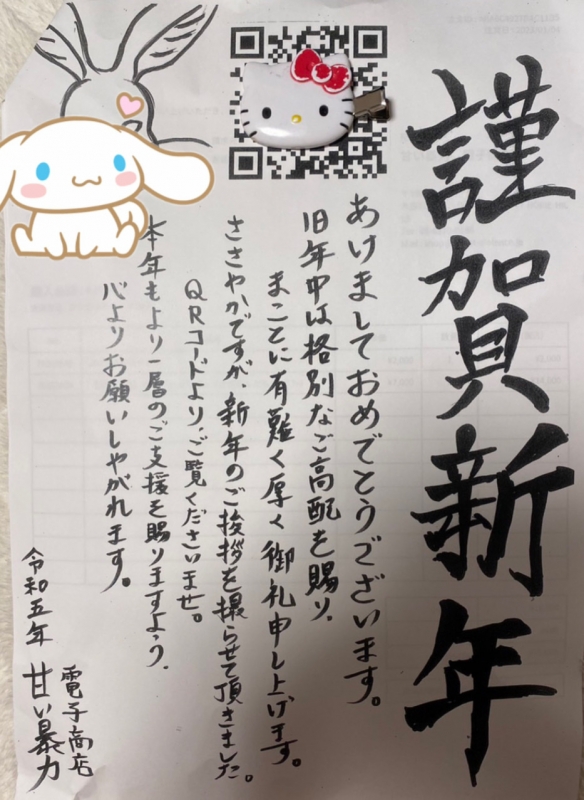 謹賀新年
あけましておめでとうございます。
旧年中は格別なご高配を賜り、
まことに有難く厚く御礼申し上げます。
ささやかですが、新年のご挨拶を撮らせて頂きました。
QRコードより、ご覧くださいませ。
本年もより一層のご支援を賜りますよう、
心よりお願いしやがれます。
令和五年
電子商店
甘い暴力